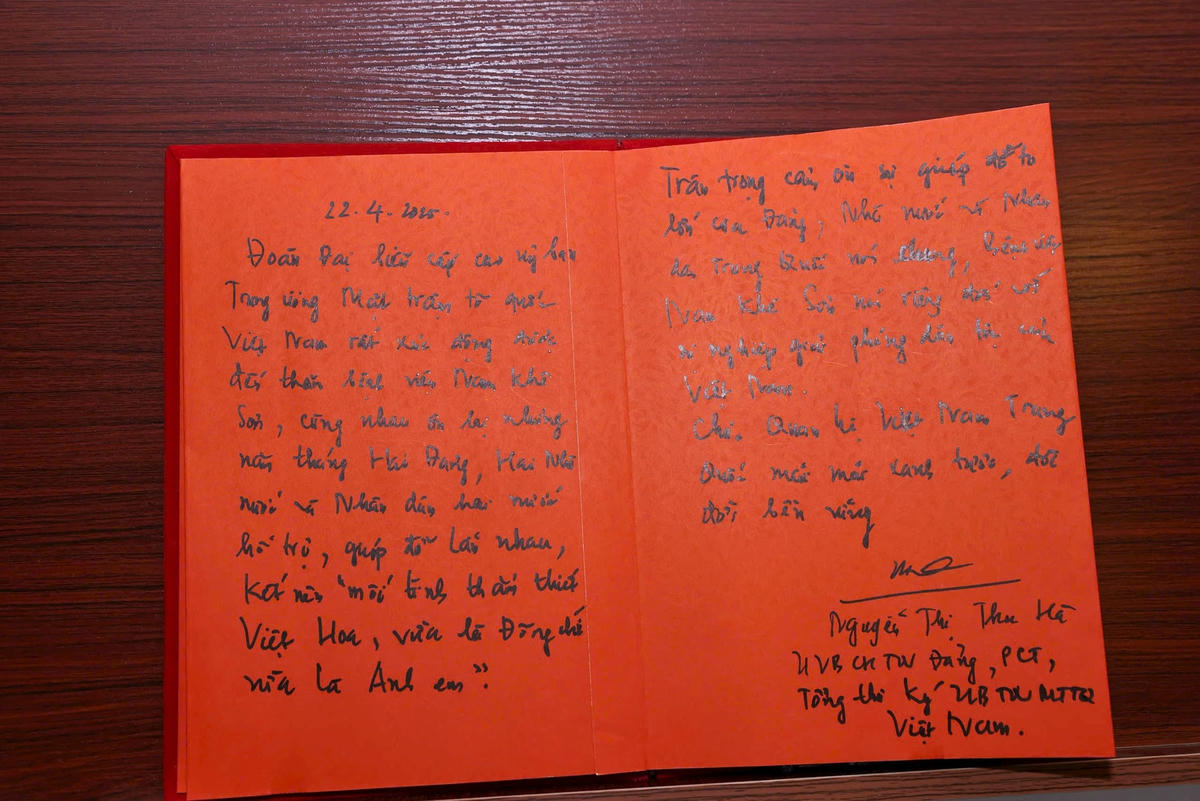 22.4.2025.
Đoàn Đại biểu cấp cao Uỷ ban
Trung ương Mặt trận tổ quốc
Việt Nam rất xúc động được
đến thăm bệnh viện Nam Khê
Sơn, cùng nhau ôn lại những
năm tháng Hai Đảng, Hai Nhà
nước và Nhân dân hai nước
hỗ trợ, giúp đỡ lẫn nhau,
Kết nên "mối tình thắm thiết
Việt Hoa, vừa là Đồng chí
vừa là Anh em".
Trân trọng cảm ơn sự giúp đỡ to
lớn của Đảng, Nhà nước và Nhân
dân Trung Quốc nói chung, bệnh viện
Nam Khê Sơn nói riêng đối với
sự nghiệp giải phóng dân tộc của
Việt Nam.
Chúc Quan hệ Việt Nam Trung
Quốc mãi mãi xanh tươi, đời
đời bền vững
Nguyễn Thị Thu Hà
UVBCHTW Đảng, PCT,
Tổng thư ký UBTWMTTQ
Việt Nam.